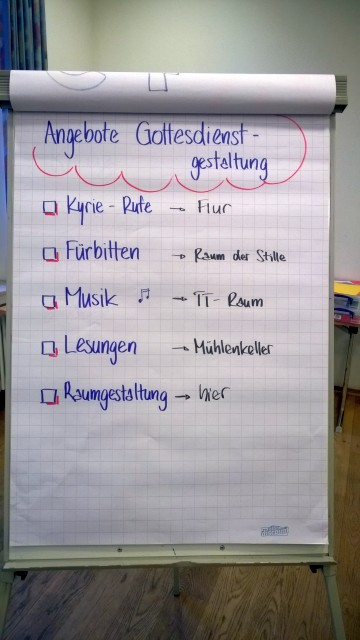 Angebote Gottesdienst-
gestaltung
Kyrie-Rufe → Flur
Fürbitten → Raum der Stille
Musik ♫ → TT-Raum
Lesungen → Mühlenkeller
Raumgestaltung → hier